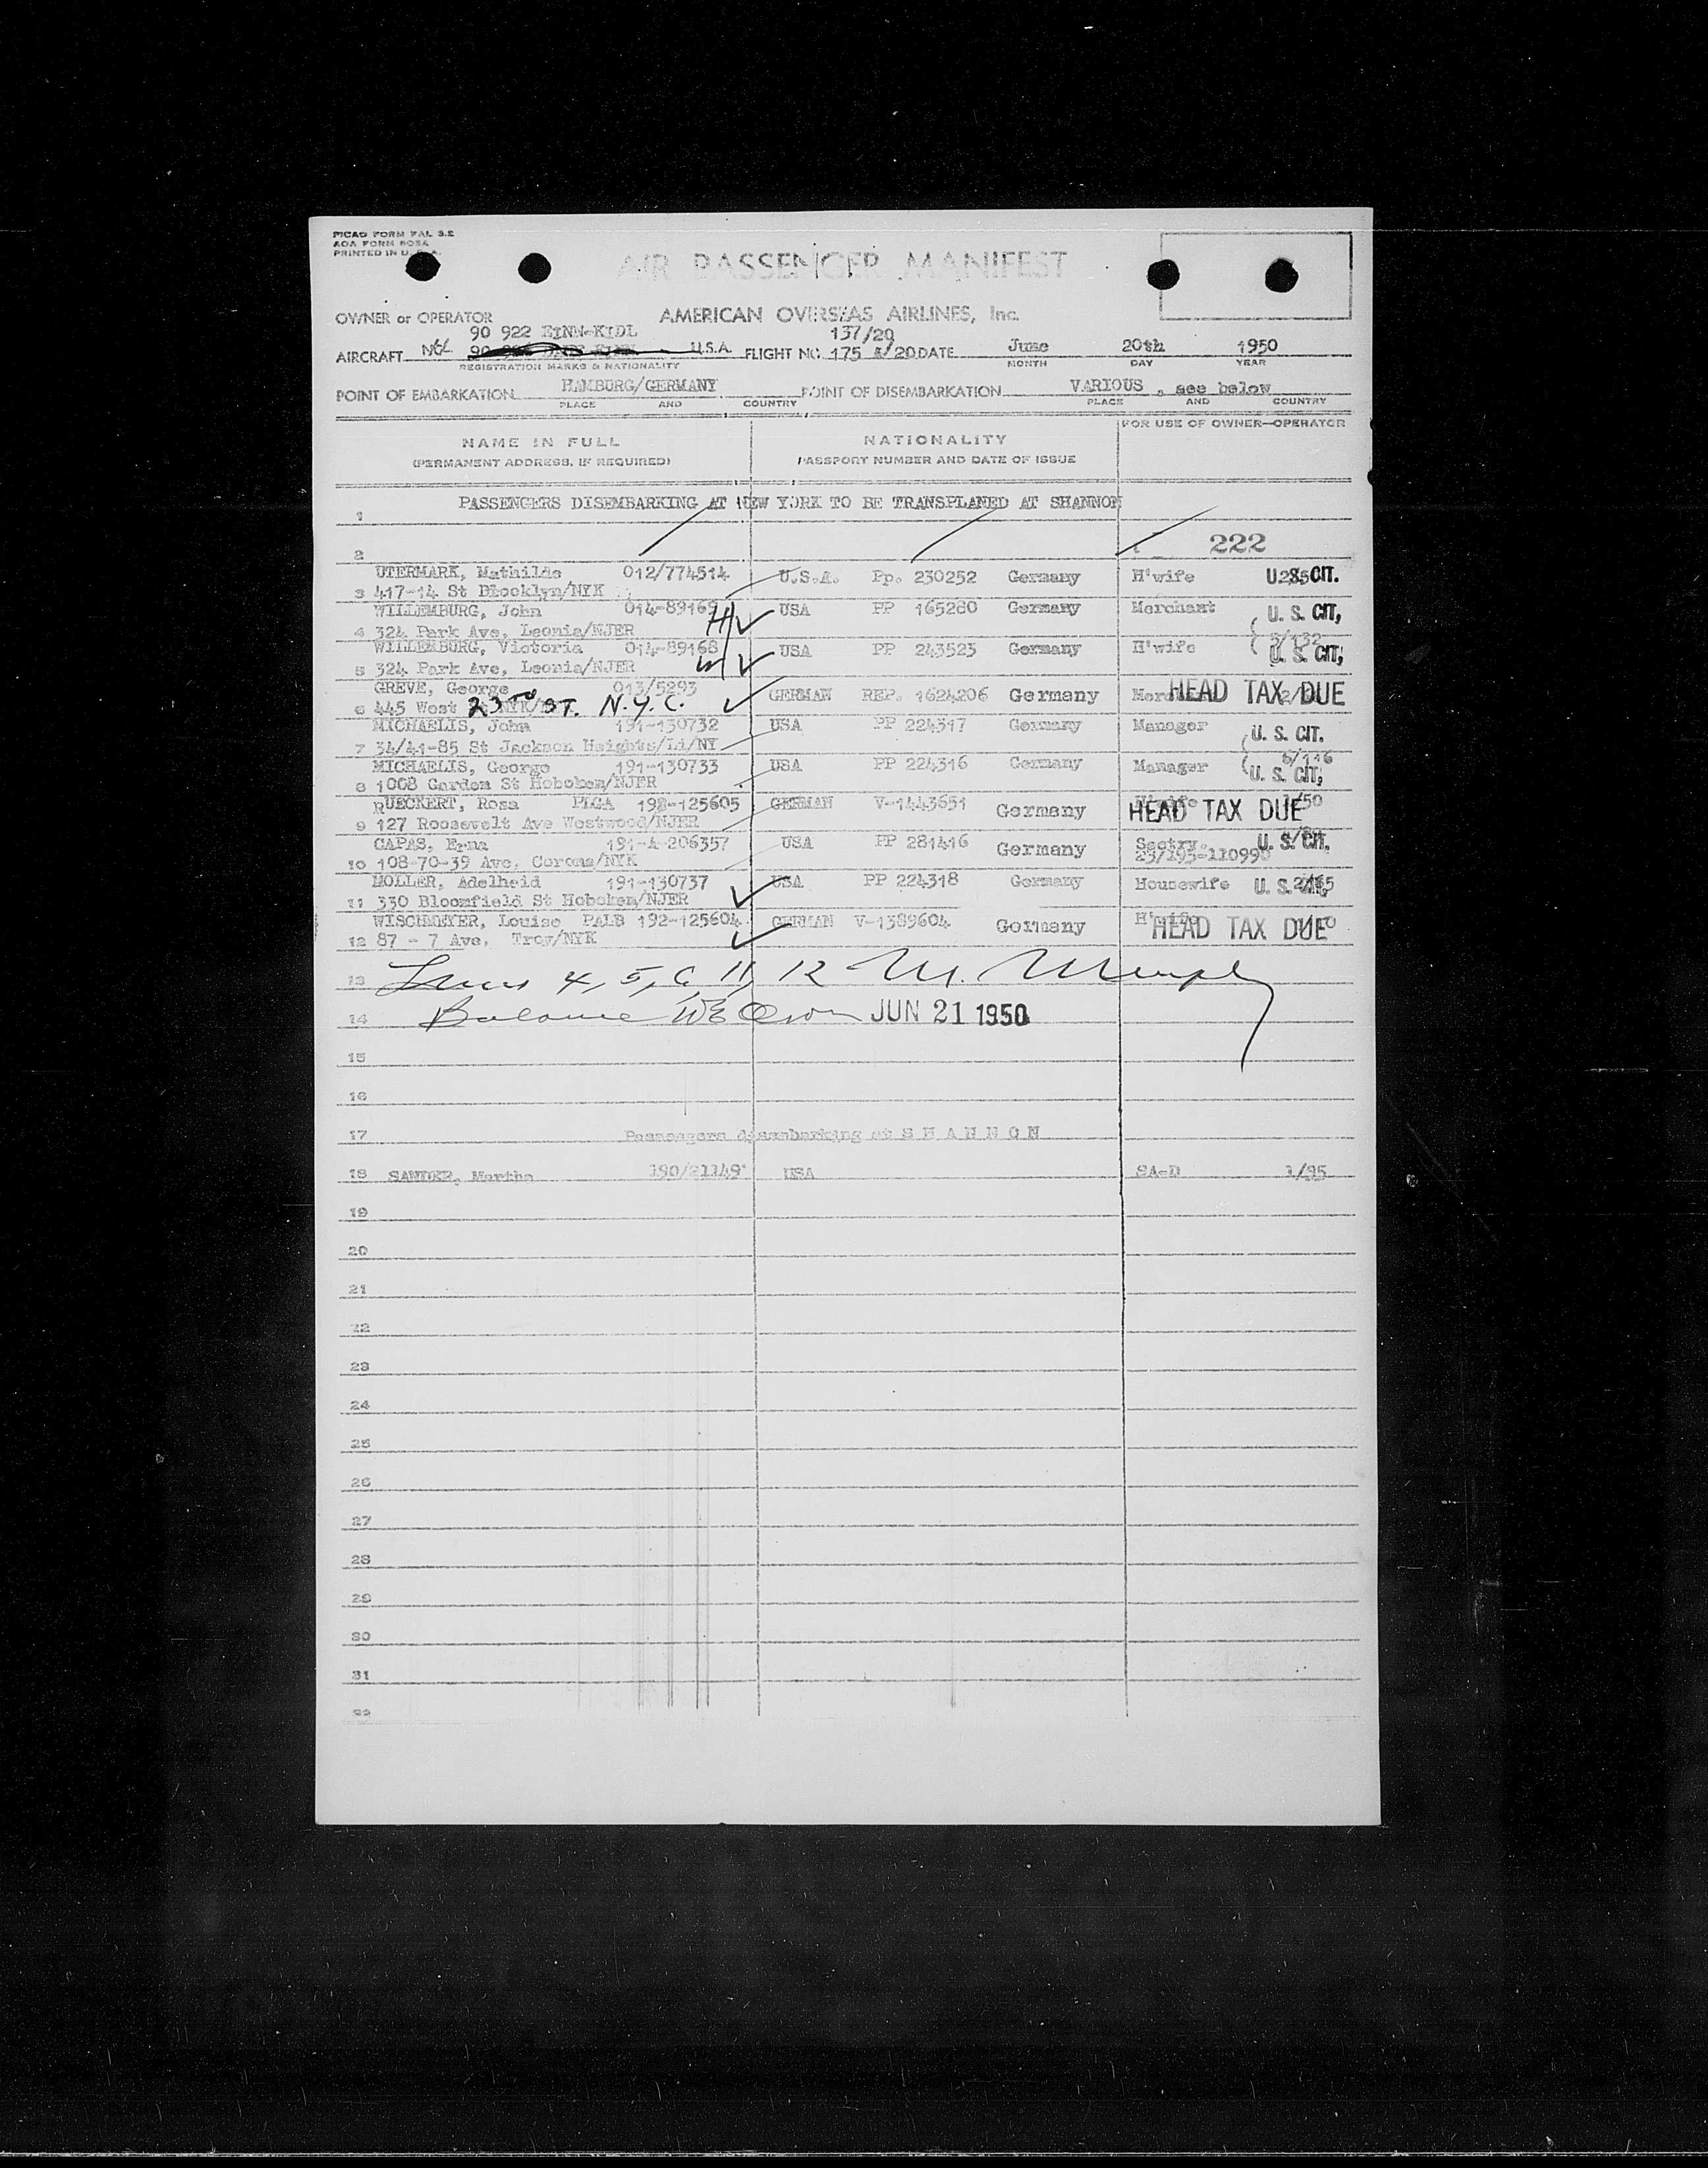 PICAO FORM FAL 3.2
AOA FORM 803A
PRINTED IN U.S.A.
AIR PASSENGER MANIFEST
OWNER or OPERATOR AMERICAN OVERSEAS AIRLINES, Inc.
90 922 EINN-KIDL 137/20
AIRCRAFT U.S.A. FLIGHT NO. 175 /20 DATE June 20th 1950
REGISTRATION MARKS & NATIONALITY MONTH DAY YEAR
POINT OF EMBARKATION HAMBURG/GERMANY POINT OF DISEMBARKATION VARIOUS, see below
PLACE AND COUNTRY PLACE AND COUNTRY
NAME IN FULL NATIONALITY FOR USE OF OWNER—OPERATOR
(PERMANENT ADDRESS, IF REQUIRED) PASSPORT NUMBER AND DATE OF ISSUE
1 PASSENGERS DISEMBARKING AT NEW YORK TO BE TRANSPLANED AT SHANNON
2 222
UTERMARK, Mathilde 012/774514 U.S.A. Pp. 230252 Germany H'wife U.S. CIT.
3 417-14 St Blooklyn/NYK
WILLEMBURG, John 014-89169 H ✓ USA PP 165280 Germany Merchant U. S. CIT,
4 324 Park Ave, Leonia/NJER
WILLEMBURG, Victoria 014-89168 W ✓ USA PP 243523 Germany H'wife 3/132 U. S. CIT,
5 324 Park Ave, Leonia/NJER
GREVE, George 013/5293 ✓ GERMAN REP. 1624206 Germany HEAD TAX DUE
6 445 West 23TH ST. N.Y.C.
MICHAELIS, John 191-130732 USA PP 224317 Germany Manager U. S. CIT.
7 34/41-85 St Jackson Heights/Li/NY
MICHAELIS, George 191-130733 USA PP 224316 Germany Manager 6/116 U. S. CIT,
8 1008 Garden St Hoboken/NJER
RUECKERT, Rosa PLCA 192-125605 GERMAN V-1443651 Germany HEAD TAX DUE /50
9 127 Roosevelt Ave Westwood/NJER
CAPAS, Erna 191-A-206357 USA PP 281416 Germany Sectry. U. S. CIT,
10 108-70-39 Ave, Corona/NYK 25/195-110990
MOLLER, Adelheid 191-130737 ✓ USA PP 224318 Germany Housewife U. S. CIT,
11 330 Bloomfield St Hoboken/NJER
WISCHMEYER, Louise PALB 192-125604 ✓ GERMAN V-1389604 Germany H'wife HEAD TAX DUE
12 87 - 7 Ave, Troy/NYK
13 Lines 4, 5, 6, 11, 12 M. Murphy
14 Balance JUN 21 1950
15
16
17 Passengers disembarking at S H A N N O N
18 SANDER, Martha 190/21149 USA SA-D 1/85
19
20
21
22
23
24
25
26
27
28
29
30
31
32